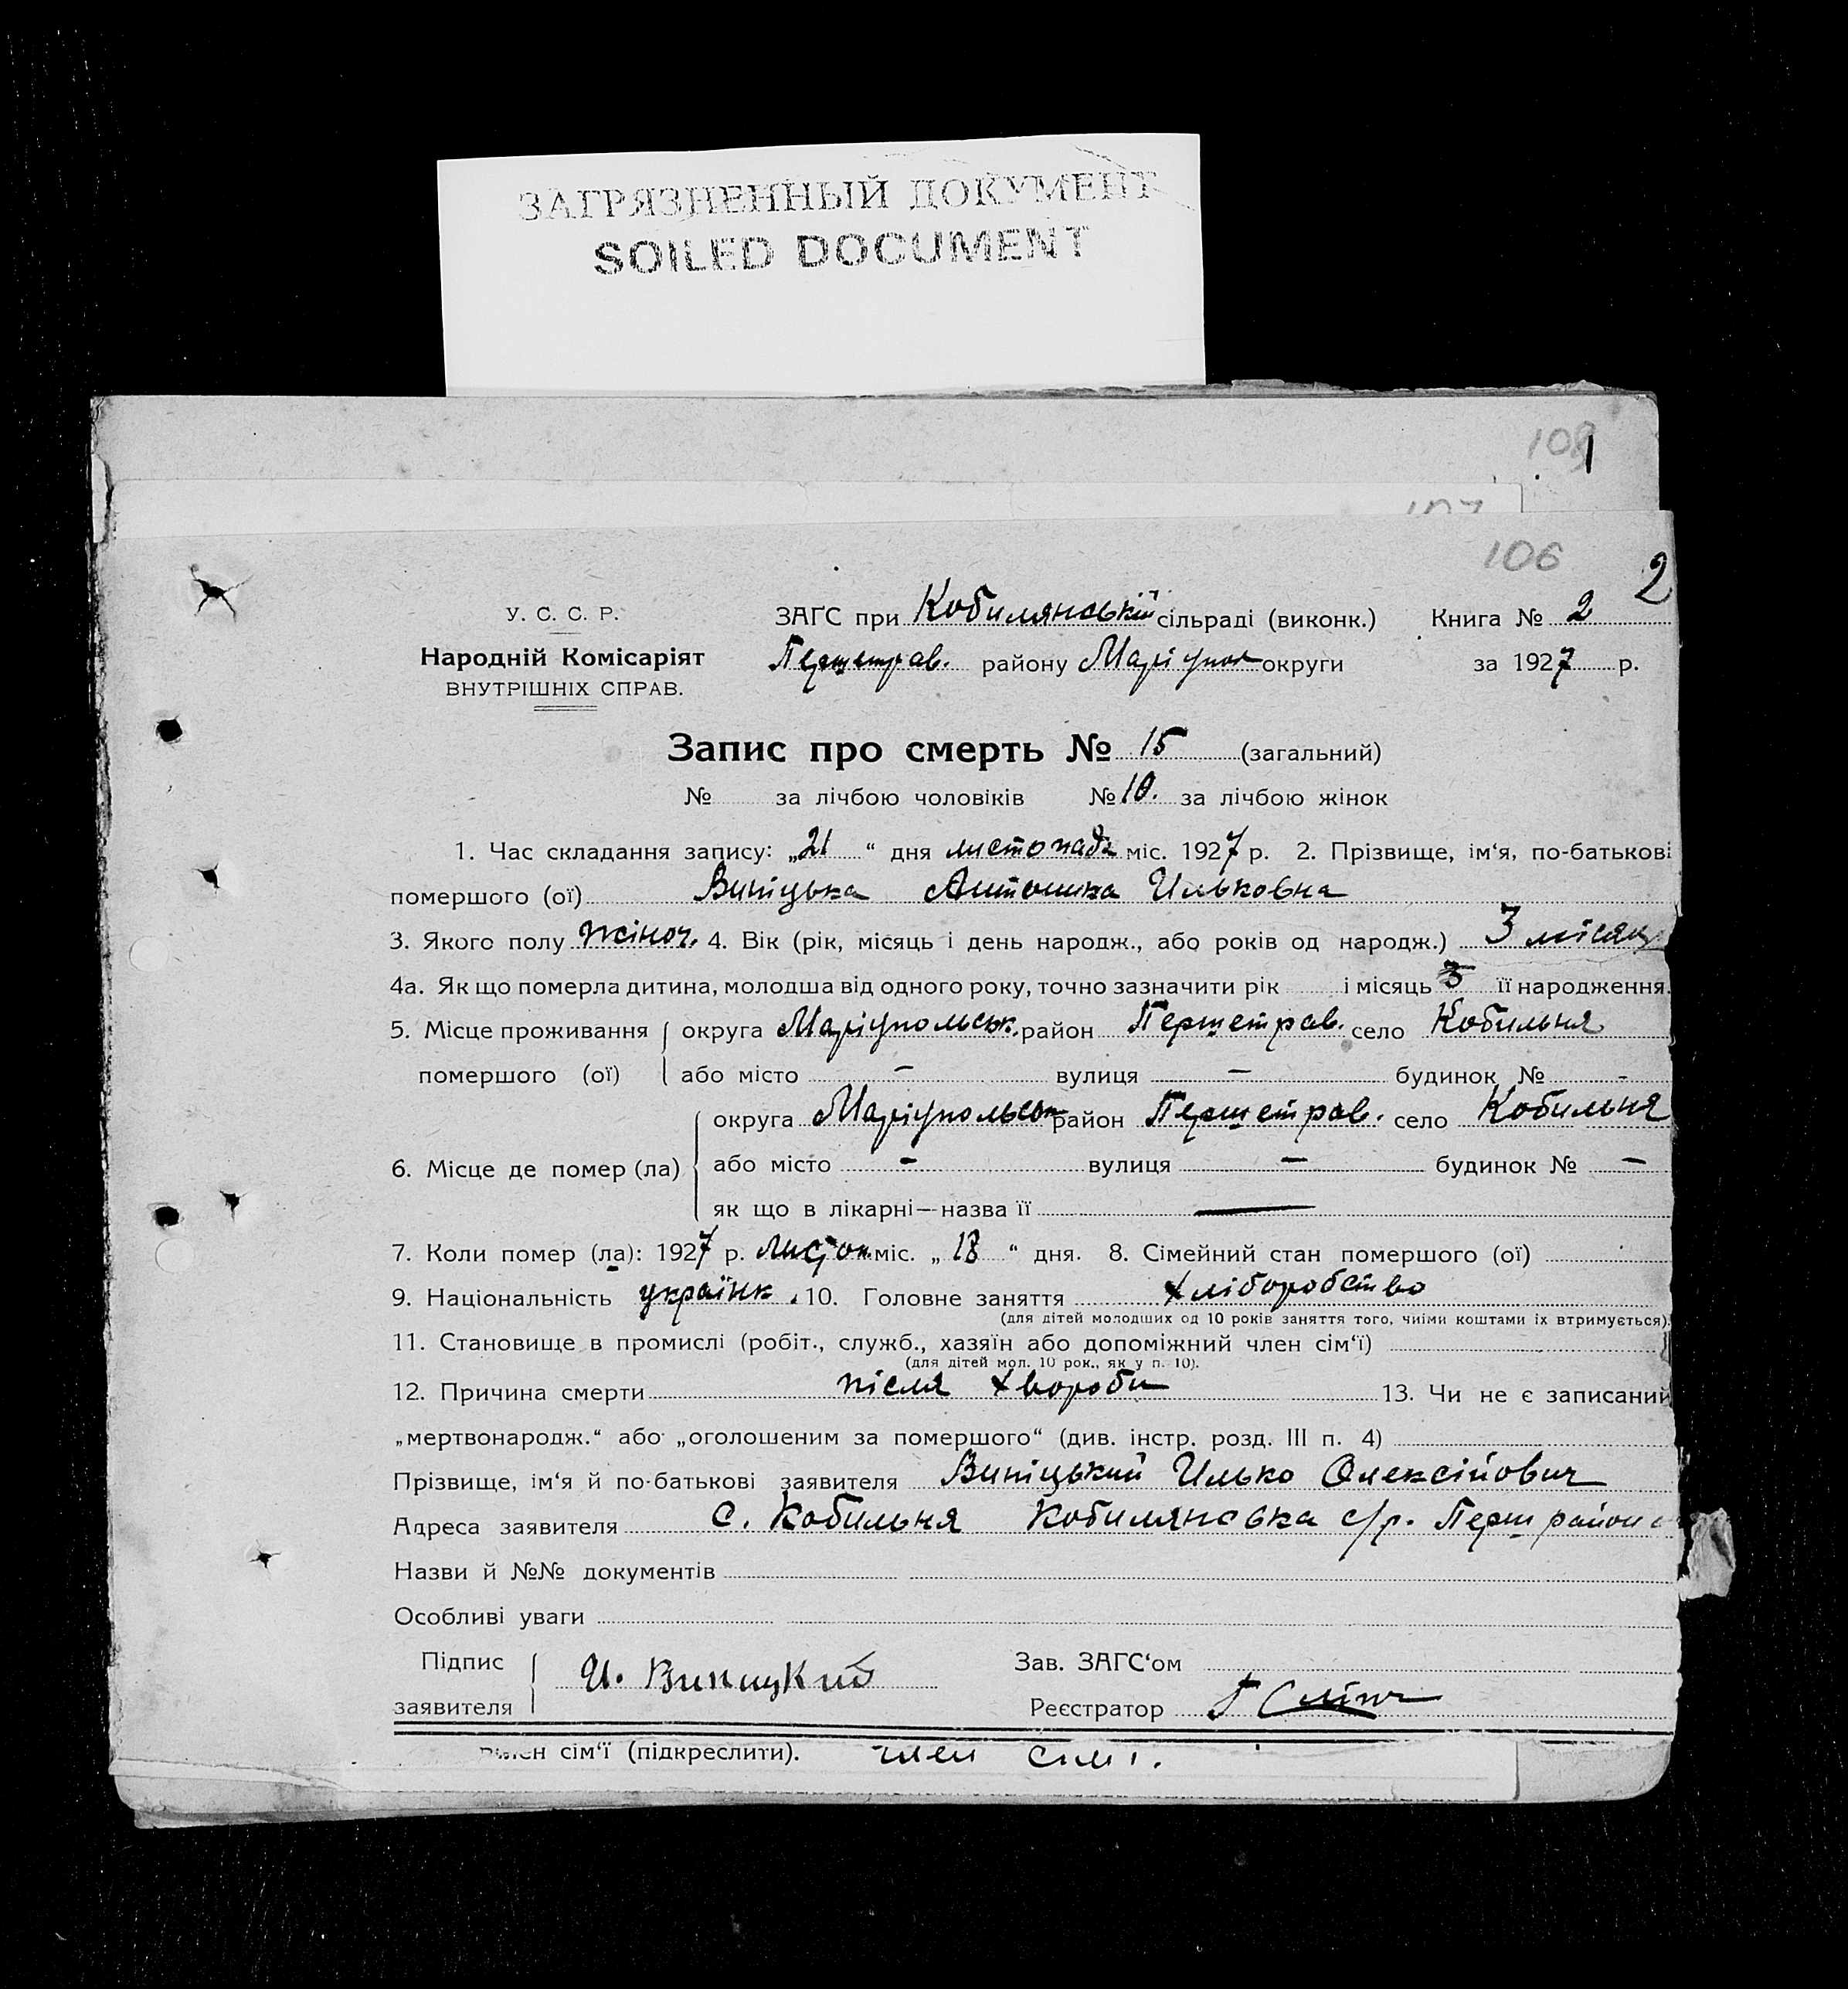 ЗАГРЯЗНЕННЫЙ ДОКУМЕНТ
SOILED DOCUMENT
1
106
2
У. С. С. Р.
Народній Комісаріят
ВНУТРІШНІХ СПРАВ.
ЗАГС при Кобилянській сільраді (виконк.) Книга № 2
Першетрав. району Маріупол округи за 1927 р.
Запис про смерть № 15 (загальний)
№ за лічбою чоловіків № 10. за лічбою жінок
1. Час складання запису: „21 “ дня листопада міс. 1927 р. 2. Прізвище, ім‘я, по-батькові
помершого (ої) Виніцька Антоніна ИлькоВна
3. Якого полу жіноч. 4. Вік (рік, місяць і день народж., або років од народж.) 3 місяц
4а. Як що померла дитина, молодша від одного року, точно зазначити рік і місяць 3 її народження.
5. Місце проживання округа Маріупольськ. район Першетрав. село Кобильня
помершого (ої) або місто – вулиця – будинок № -
округа Маріупольськ район Першетрав. село Кобильня
6. Місце де помер (ла) або місто – вулиця – будинок № –
як що в лікарні—назва її —
7. Коли помер (ла): 1927 р. Листоп міс. „ 18 “ дня. 8. Сімейний стан помершого (ої)
9. Національність українк. 10. Головне заняття хліборобство
(для дітей молодших од 10 років заняття того, чиїми коштами їх втримується).
11. Становище в промислі (робіт., служб., хазяїн або допоміжний член сім‘ї)
(для дітей мол. 10 рок., як у п. 10).
12. Причина смерти після хвороби 13. Чи не є записаний
„мертвонародж.“ або „оголошеним за помершого“ (див. інстр. розд. III п. 4)
Прізвище, ім‘я й по-батькові заявителя Виніцький Илько Олексійович
Адреса заявителя с. Кобильня Кобилянсвка с/р. Перш району
Назви й №№ документів
Особливі уваги
Підпис
заявителя И. Виницкий
Зав. ЗАГС‘ом
Реєстратор
член сім‘ї (підкреслити). член сімї.